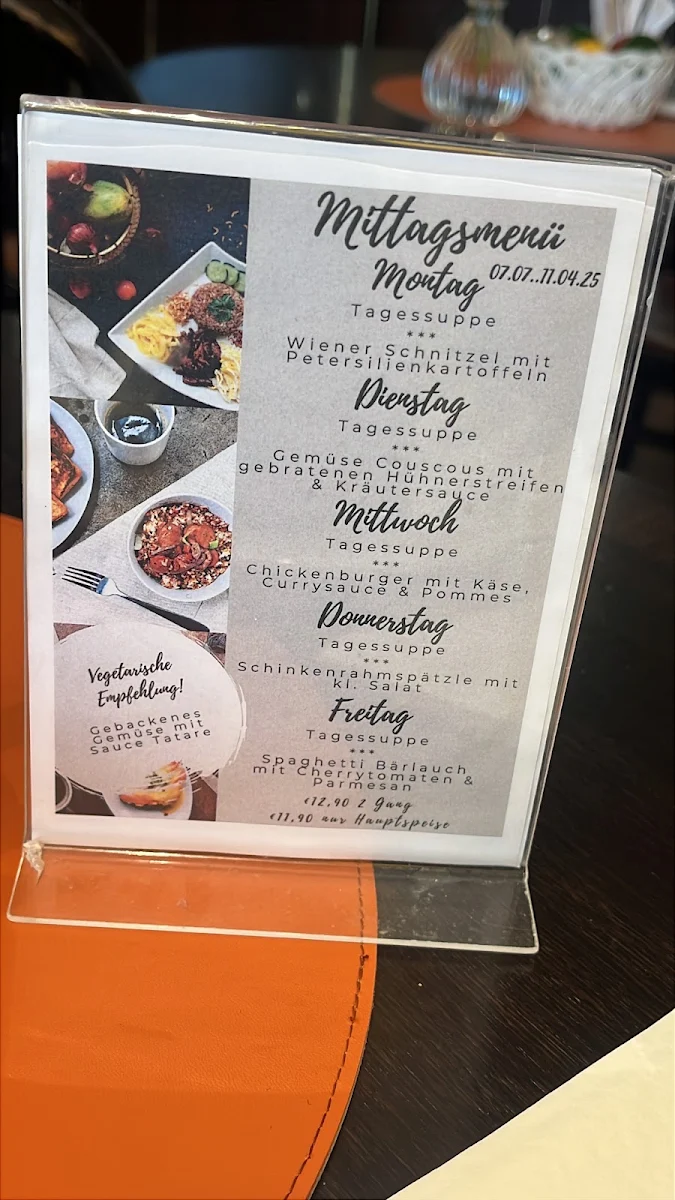 Mittagsmenü
07.07..11.04.25
Montag
Tagessuppe
***
Wiener Schnitzel mit
Petersilienkartoffeln
Dienstag
Tagessuppe
***
Gemüse Couscous mit
gebratenen Hühnerstreifen
& Kräutersauce
Mittwoch
Tagessuppe
***
Chickenburger mit Käse,
Currysauce & Pommes
Donnerstag
Tagessuppe
***
Schinkenrahmspätzle mit
kl. Salat
Freitag
Tagessuppe
***
Spaghetti Bärlauch
mit Cherrytomaten &
Parmesan
€12,90 2 Gang
€11,90 nur Hauptspeise
Vegetarische
Empfehlung!
Gebackenes
Gemüse mit
Sauce Tatare